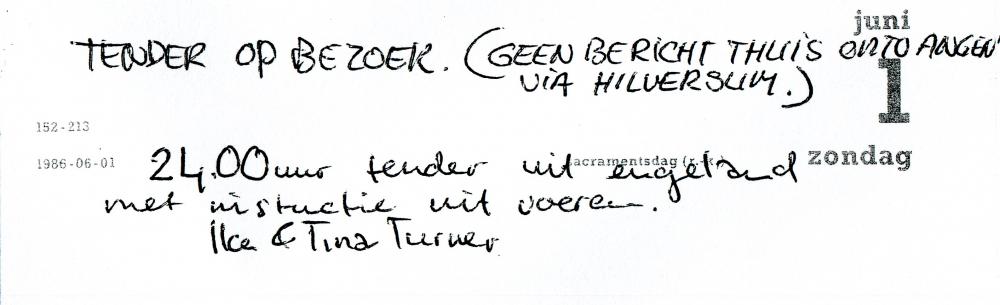 juni
TENDER OP BEZOEK. (GEEN BERICHT THUIS ONTVANGEN
VIA HILVERSUM.)
1
152-213
1986-06-01
24.00 uur tender uit engeland
sacramentsdag (r.-k.)
zondag
met instuctie uit voeren.
Ike & Tina Turner